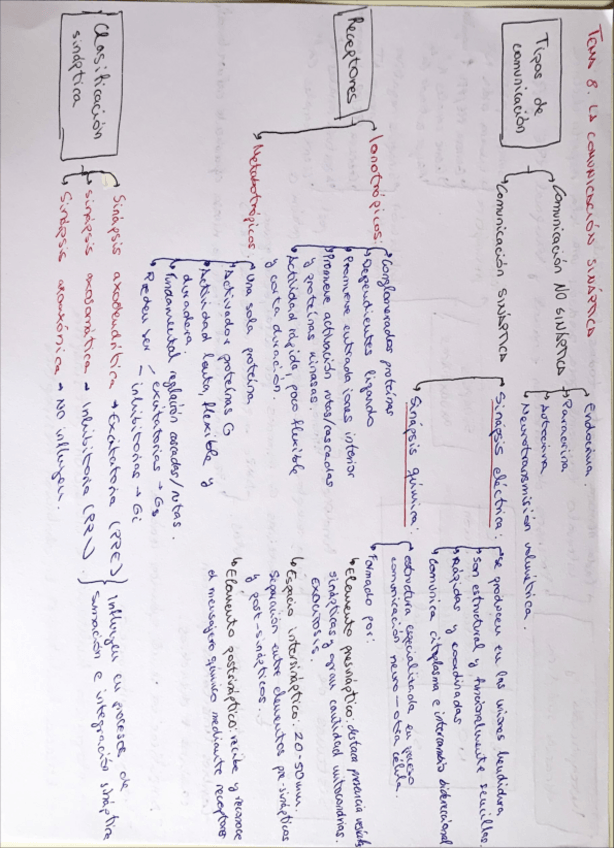 TEMA 8. LA COMUNICACIÓN SINÁPTICA
Tipos de
comunicación
Comunicación NO SINÁPTICA
Endocrina.
Paracrina
Autocrina
Neurotransmisión volumétrica.
Comunicación SINÁPTICA
Sinápsis eléctrica:
se producen en las uniones hendidura
son estructural y funcionalmente sencillas
Rápidas y coordinadas
Comunica citoplasma e intercambio bidireccional
Sinápsis química:
estructura especializada en proceso
comunicación neuro-otra célula.
Formado por:
Elemento presináptico: destaca presencia
sinápticas y gran cantidad mitocondrias.
Exocitosis.
Espacio intersináptico: 20-50 nm.
separación entre elementos pre-sinápticos
y post-sinápticos.
Elemento postsináptico: recibe y reconoce
el mensajero químico mediante receptores
Receptores
Ionotrópicos:
Conglomerados proteínas
Dependientes ligando
Promueve entrada iones interior
Promueve activación rutas/cascadas
y proteínas kinasas.
Actividad rápida, poco flexible
y corta duración.
Metabotrópicos:
Una sola proteína
Activador proteínas G
Actividad lenta, flexible y
duradera.
Fundamental regulación cascadas/rutas.
Pueden ser
excitatorias → Gs
inhibitorias → Gi
Clasificación
sináptica
Sinápsis axodendrítica → Excitatoria (PPE)
sinápsis axosomática → Inhibitoria (PPI)
Influyen en procesos de
sumación e integración sináptica
Sinápsis axoaxónica → NO influyen.